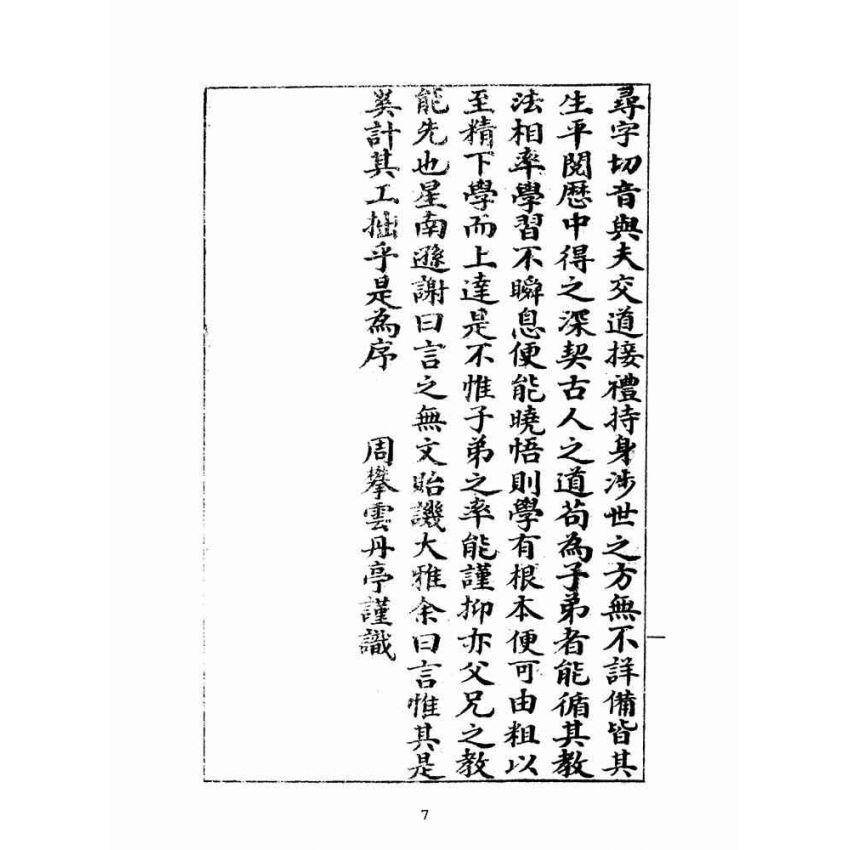 尋字切音與夫交道接禮持身涉世之方無不詳備皆其
生平閱歷中得之深契古人之道苟為子弟者能循其教
法相率學習不瞬息便能曉悟則學有根本便可由粗以
至精下學而上達是不惟子弟之率能謹抑亦父兄之教
能先也星南遜謝曰言之無文貽譏大雅余曰言惟其是
奚計其工拙乎是為序 周攀雲丹亭謹識
7